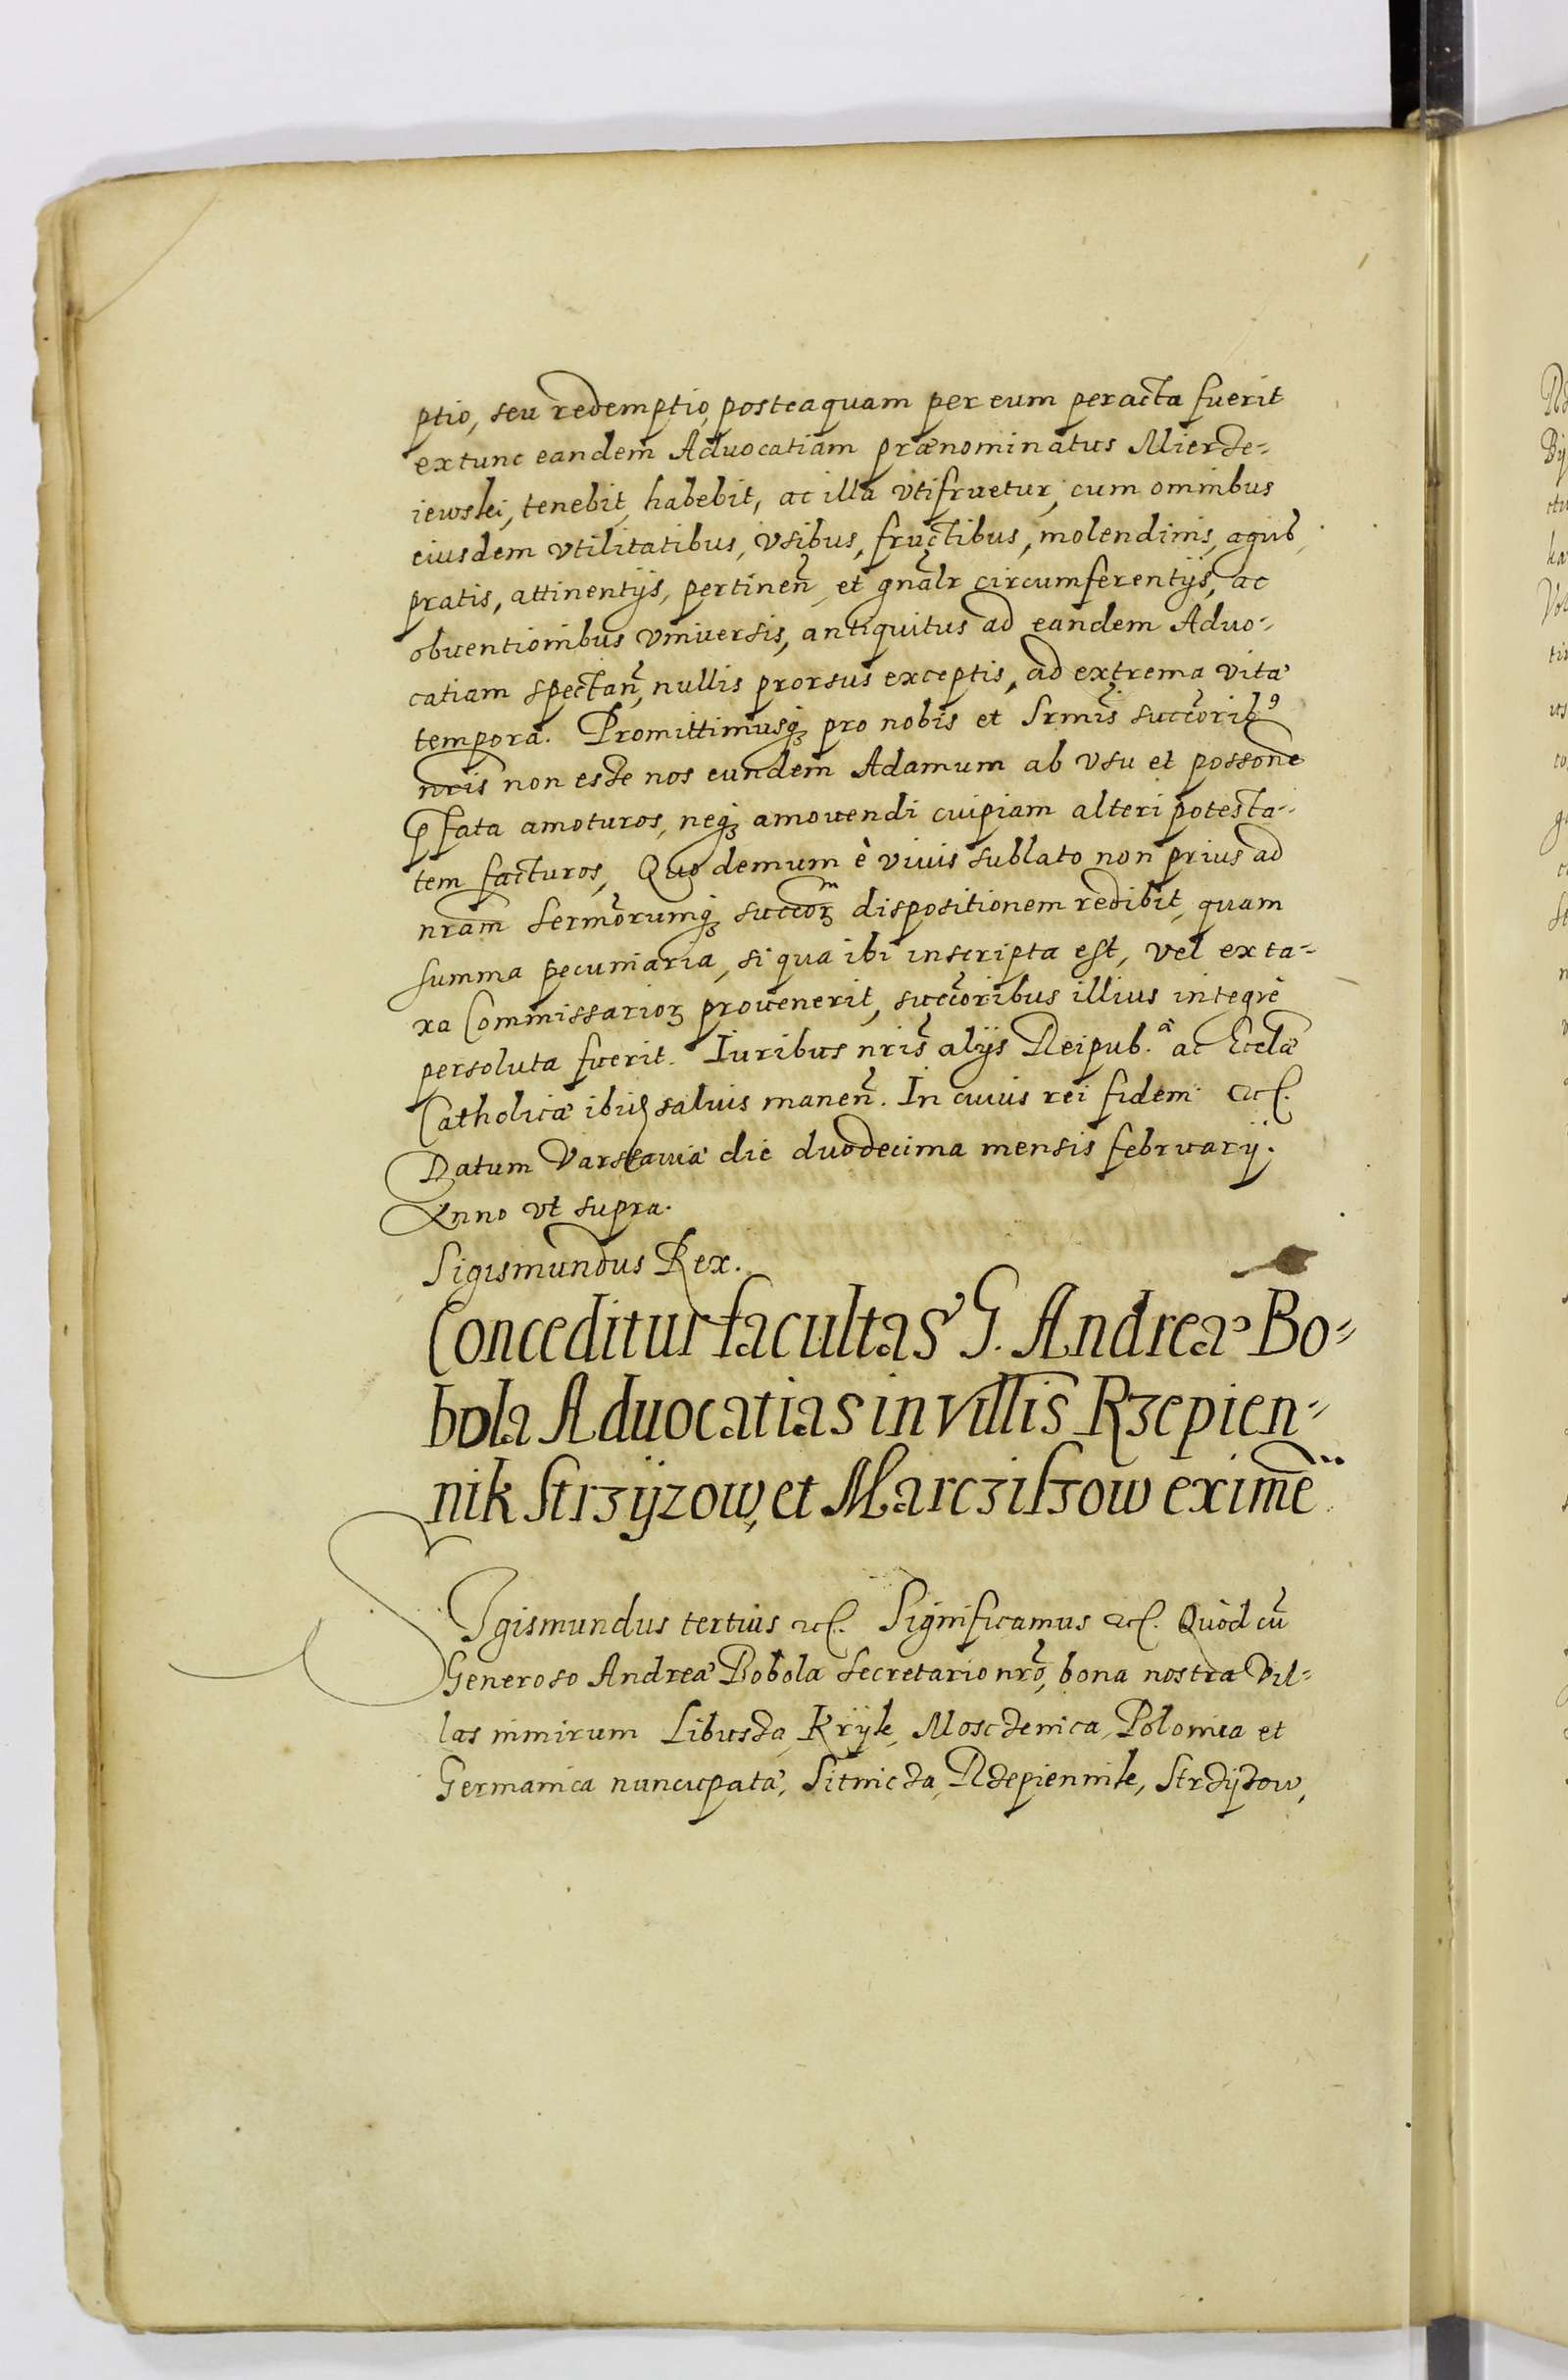 ptio, seu redemptio, posteaquam per eum peracta fuerit
extunc eandem Aduocatiam prænominatus Mierze-
iewski, tenebit, habebit, ac illa vtifruetur, cum omnibus
eiusdem vtilitatibus, vsibus, fructibus, molendinis, aquis,
pratis, attinentijs, pertinen̄, et gnālr circumferentijs, ac
obuentionibus vniuersis, antiquitus ad eandem Aduo-
catiam spectan̄, nullis prorsus exceptis, ad extrema vitæ
tempora. Promittimusq₃ pro nobis et Srmis̄ succ̄orib⁹
nr̄is non esse nos eundem Adamum ab vsu et posson̄e
p̄fata amoturos, neq₃ amouendi cuipiam alteri potesta-
tem facturos, Quo demum è viuis sublato non prius ad
nr̄am Sermōrumq₃ succorꝫ dispositionem redibit, quam
summa pecuniaria, si qua ibi inscripta est, vel ex ta-
xa Commissariorꝫ prouenerit, succ̄oribus illius integrè
persoluta fuerit. Iuribus nr̄is alijs Reipub.ᵃ ac Eccl̄æ
Catholicæ ibid saluis manen̄. In cuius rei fidem etc.
Datum Varsauiæ die duodecima mensis februarij.
Anno vt supra.
Sigismundus Rex.
Conceditur facultas G. Andreæ Bo-
bola Aduocatias in villis Rzepien-
nik Strzyzow, et Marcziszow eximē
Sigismundus tertius etc. Significamus etc. Quòd cū
Generoso Andreæ Bobola Secretario nrō, bona nostra Vil-
las nimirum Libusza, Kryk, Moszczenica, Polonica et
Germanica nuncupatæ, Sitnicza, Rzepiennik, Strzyzow,